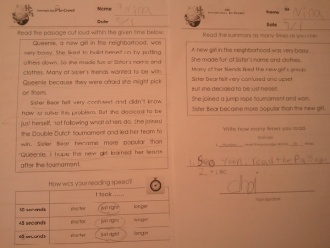 Name Nina
Date 5/1
Read the passage out loud within the given time below.
Queenie, a new girl in the neighborhood, was
very bossy. She liked to build herself up by putting
others down. So she made fun of Sister's name and
clothes. Many of Sister's friends wanted to be with
Queenie because they were afraid she might pick
on them.
Sister Bear felt very confused and didn't know
how to solve this problem. But she decided to be
just herself, not following what others do. She joined
the Double Dutch tournament and led her team to
win. Sister Bear became more popular than
Queenie. I hope the new girl learned her lesson
after the tournament.
How was your reading speed?
I took
30 seconds shorter just right longer
45 seconds shorter just right longer
60 seconds shorter just right longer
Name Nina
Date 5/1
Read the summary as many times as you can.
A new girl in the neighborhood was very bossy.
She made fun of Sister's name and clothes.
Many of her friends liked the new girl's group.
Sister Bear felt very confused and upset
but she decided to be just herself.
She joined a jump rope tournament and won.
Sister Bear became more popular than the new girl.
Write how many times you read.